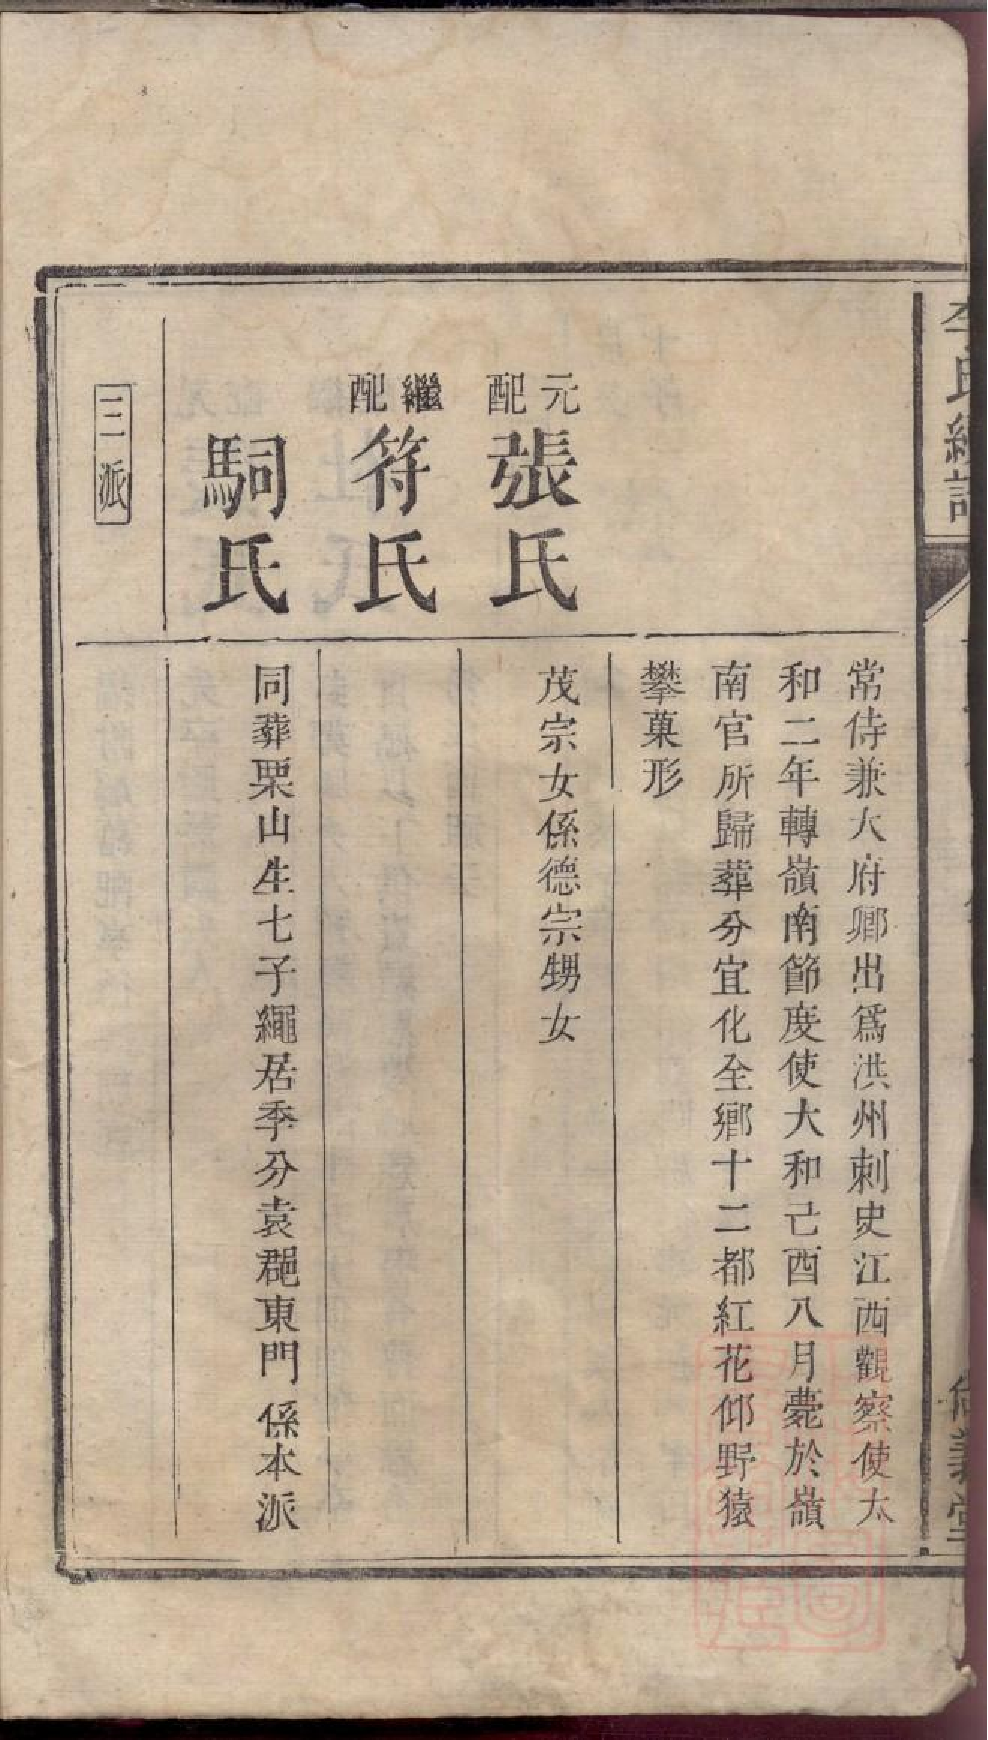 李氏續譜
尚義堂
常侍兼大府卿出爲洪州刺史江西觀察使太
和二年轉嶺南節度使大和己酉八月薨於嶺
南官所歸葬分宜化全鄉十二都紅花仰野猿
攀菓形
元配
張氏
茂宗女係德宗甥女
繼配
符氏
駉氏
同葬栗山生七子繩居季分袁郡東門係本派
二派